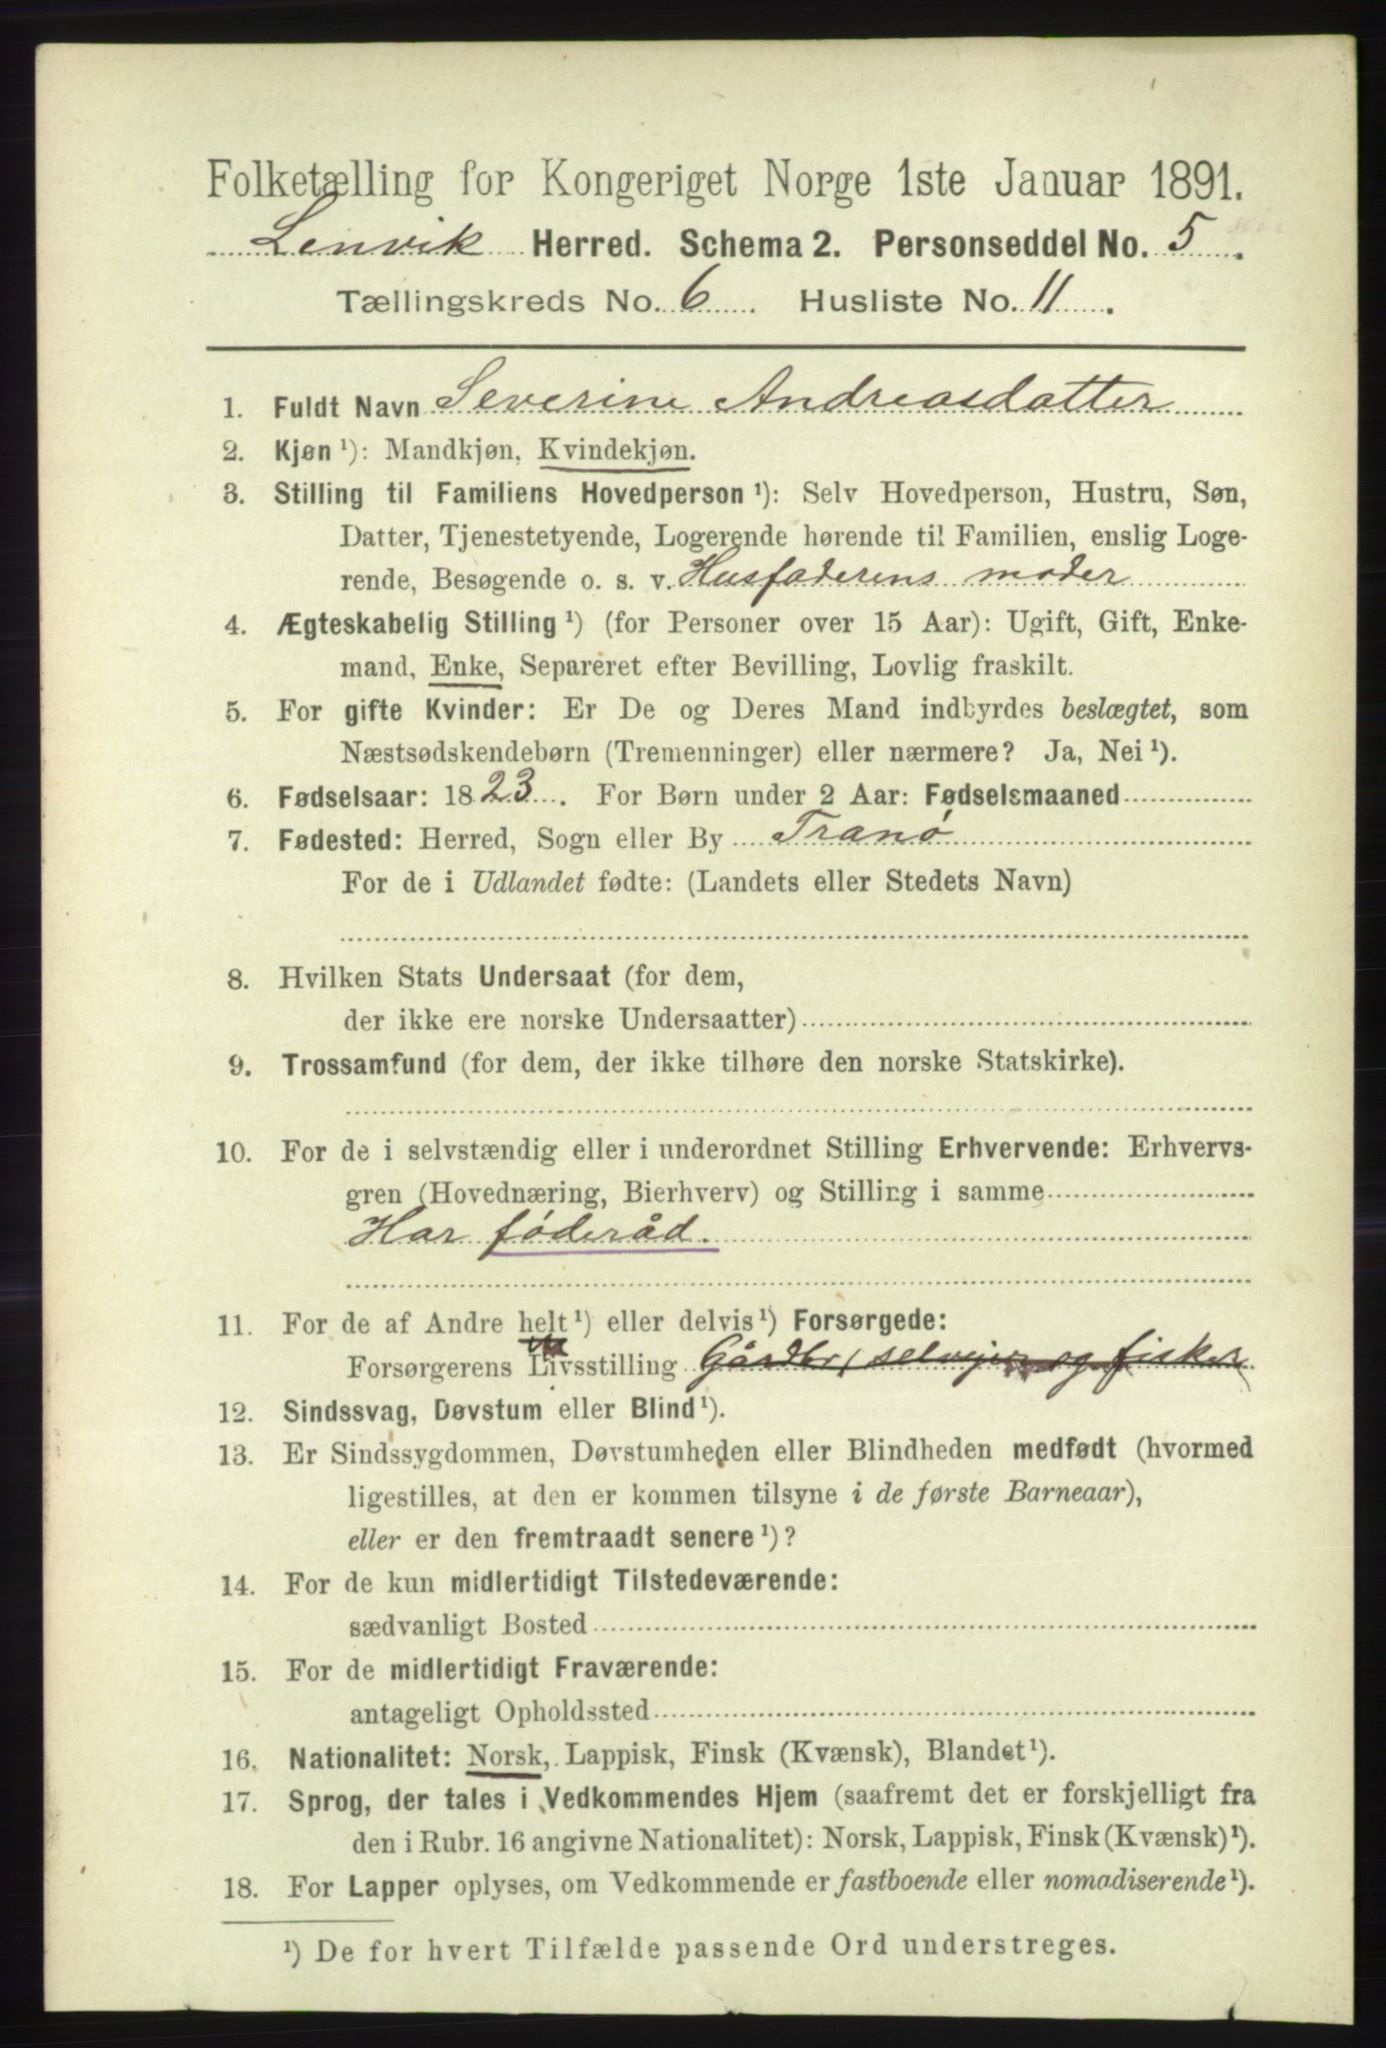 Folketælling for Kongeriget Norge 1ste Januar 1891.
Lenvik Herred. Schema 2. Personseddel No. 5.
Tællingskreds No. 6. Husliste No. 11.
1. Fuldt Navn Severine Andreasdatter
2. Kjøn ¹): Mandkjøn, Kvindekjøn.
3. Stilling til Familiens Hovedperson ¹): Selv Hovedperson, Hustru, Søn,
Datter, Tjenestetyende, Logerende hørende til Familien, enslig Loge-
rende, Besøgende o. s. v. Husfaderens moder
4. Ægteskabelig Stilling ¹) (for Personer over 15 Aar): Ugift, Gift, Enke-
mand, Enke, Separeret efter Bevilling, Lovlig fraskilt.
5. For gifte Kvinder: Er De og Deres Mand indbyrdes beslægtet, som
Næstsødskendebørn (Tremenninger) eller nærmere? Ja, Nei ¹).
6. Fødselsaar: 1823. For Børn under 2 Aar: Fødselsmaaned
7. Fødested: Herred, Sogn eller By Tranø
For de i Udlandet fødte: (Landets eller Stedets Navn)
8. Hvilken Stats Undersaat (for dem,
der ikke ere norske Undersaatter)
9. Trossamfund (for dem, der ikke tilhøre den norske Statskirke).
10. For de i selvstændig eller i underordnet Stilling Erhvervende: Erhvervs-
gren (Hovednæring, Bierhverv) og Stilling i samme
Har føderåd.
11. For de af Andre helt ¹) eller delvis ¹) Forsørgede:
Forsørgerens Livsstilling Gårdbr, selveier og fisker
12. Sindssvag, Døvstum eller Blind ¹).
13. Er Sindssygdommen, Døvstumheden eller Blindheden medfødt (hvormed
ligestilles, at den er kommen tilsyne i de første Barneaar),
eller er den fremtraadt senere ¹)?
14. For de kun midlertidigt Tilstedeværende:
sædvanligt Bosted
15. For de midlertidigt Fraværende:
antageligt Opholdssted
16. Nationalitet: Norsk, Lappisk, Finsk (Kvænsk), Blandet ¹).
17. Sprog, der tales i Vedkommendes Hjem (saafremt det er forskjelligt fra
den i Rubr. 16 angivne Nationalitet): Norsk, Lappisk, Finsk (Kvænsk) ¹).
18. For Lapper oplyses, om Vedkommende er fastboende eller nomadiserende ¹).
¹) De for hvert Tilfælde passende Ord understreges.